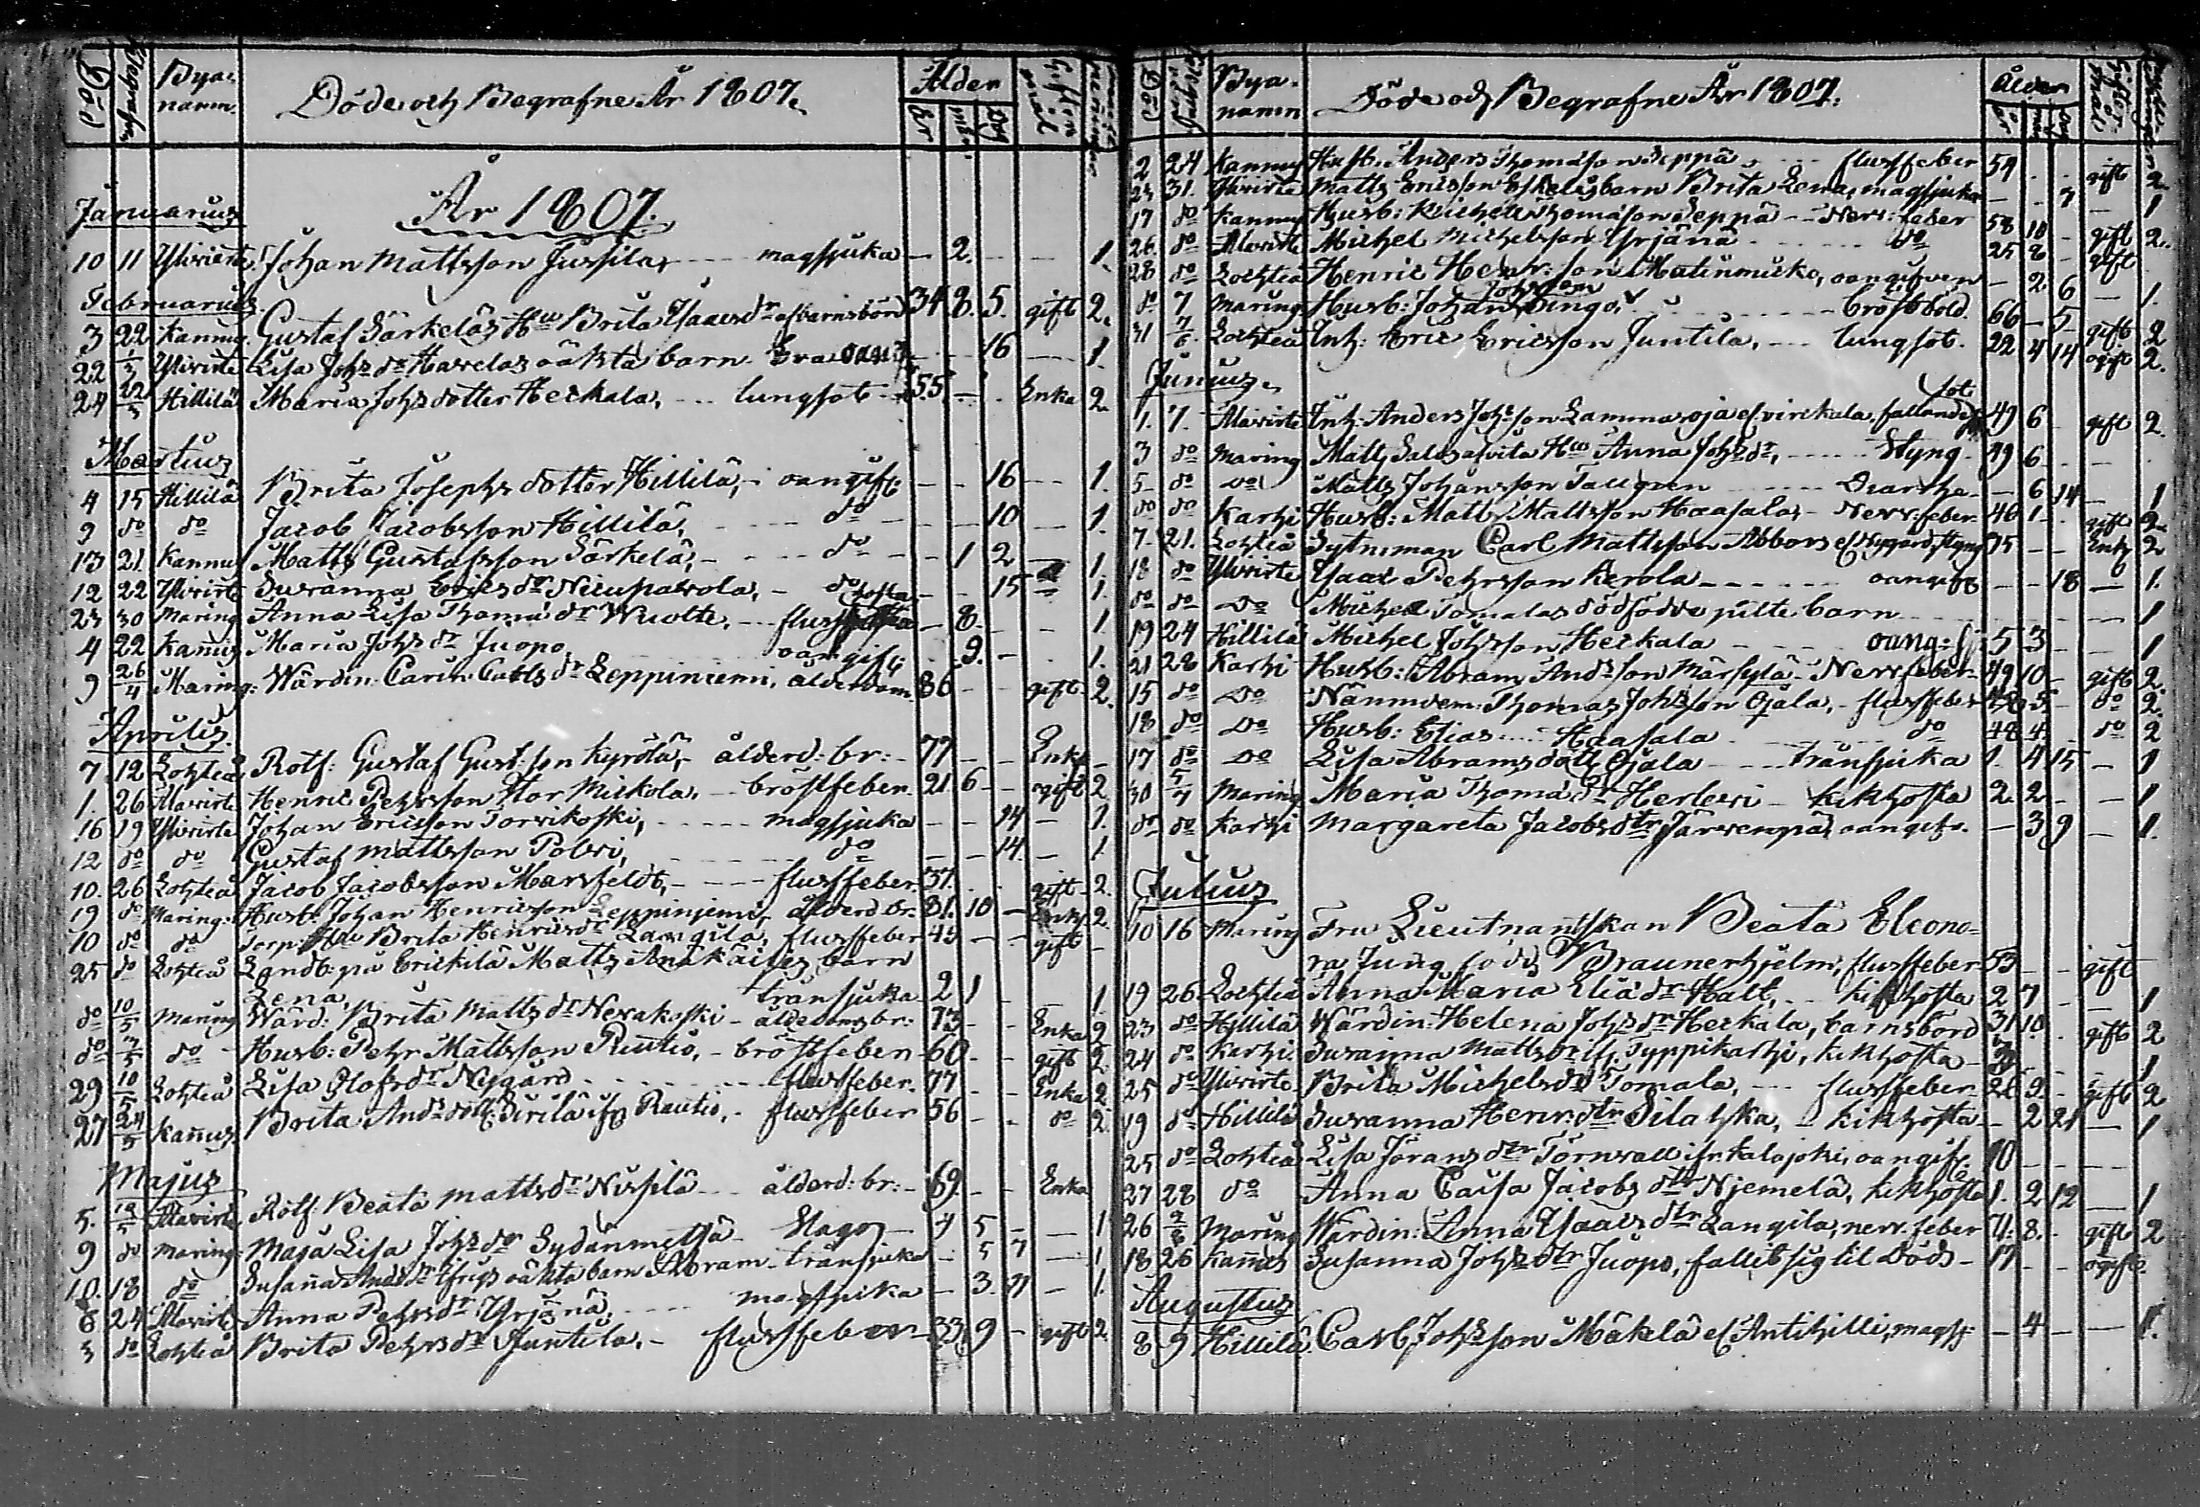 Död Begrafne Bya-namn. Döde och Begrafne År 1807. Ålder År mån Dag Giftermål
År 1807.
Januarius
10 11 Ylivirte Johan Mattsson Jussila, magsjuka — 2. — — 1.
Februarius
3 22 Kannus Gustaf Särkeläs Hu Brita Isaacsdr af barnsbörd 34 8. 5. gift 2.
22 1/3 Ylivirte Lisa Johs dr Havelas oäkta barn Eva oang. — — 16 — 1.
24 22/3 Hillilä Maria Johs dotter Heikala, lungsot 55 — Enka 2
Martius
4 15 Hillilä Brita Josephs dotter Hillilä, oangift: — — 16 — 1.
9 do do Jacob Jacobsson Hillilä, do — — 10 — 1.
13 21. Kannus Matts Gustafsson Särkelä, do — 1 2 — 1
12 22 Ylivirte Susanna Ericsdr Nicupavola, do — — 15 — 1.
23 30 Maring Anna Lisa Thoma dr Wuolte, flusshosta — 8. — — 1
4 22 Kanus Maria Johs dr Juopo, oangift — 9. — — 1.
9 26/4 Maring: Wärdin. Carin Carlsdr Leppiniemi, ålderdom 86 — — gift 2.
Aprilis.
7. 12 Lohteå Rotf: Gustaf Gust: son Kyrölä, ålderd: br: 77 — — Enkl
1. 26 Alavirte Henric Pehrsson Stor Mickola, bröstfeber 21 6 — ogift 2
16 19 Ylivirte Johan Ericsson Torvikoski, magsjuka — — 14 — 1.
12 do do Gustaf Mattsson Polvi, do — — 14. — 1
10. 26 Lohteå Jacob Jacobsson Marsfeldt, flussfeber. 37. gift 2.
19 do Maring: Husb: Johan Henricsson Leppinjemi, ålderd. br. 81. 10 — Enkl 2.
10 do do Torp: Hu Brita Henricsdr Langila, flussfeber 45 — — gift —
25 do Lohteå Landb: på Erickilä Matts Anakaines barn
Lena, transjuka 2 1 1
do 10/5 Maring Wärd: Brita Matts dr Nevakoski ålderdoms br: 73 — — Enka 2
do 7/5 do Husb: Pehr Mattsson Rautio, bröstfeber 60 — — gift 2.
29 10/5 Lohteå Lisa Olofsdr Nygård flussfeber. 77 — Enka 2
27 24/5 Kanus Brita Ands dott: Sirilä ifr Rautio, flussfeber 56 — do 2.
Majus
5. 12/5 Alavirte Rotf: Beata Mattsdr Nissilä ålderd: br: 69 — — Enka
9 do Maring: Maja Lisa Johs dr Sydänmetsä Slag 4 5 — — 1
10. 18 do Susana Ands dr Ifrigs oäkta barn Abram transjuka — 5 7 — 1
8 24 Alavirte Anna Pehrsdr Yrjänä, magsjuka — 3. 11 — 1.
3 do Lohteå Brita Pehrsdr Juntila, flussfeber 33 9 — gift 2.
Död Begrafne Bya-namn Döde och Begrafne År 1807. Ålder år mån Dag Giftermål
2 24 Kannus Husb. Anders Thomasson Seppä, flussfeber 54 gift 2.
23 31. Ylivirte Matts Ericsson Eskelas barn Brita Lena, magsjuka — — 7 — 1
17 do Kannus Husb: Michell Thomasson Seppä Nerv: feber 58 10 — gift 2.
26 do Alavirte Michel Michelsson Yrjänä do 25 8 — gift
28 do Lochteå Henric Henr: son Matinmicko, oangifven — 2 6 — 1.
do 7 Maring Husb: Johan Johnsson Ringo, bröstböld 66 — 5 — gift 2
31 7/6 Lochteå Inh: Eric Ericsson Juntila, lungsot. 22 4 14 ogift 2.
Junius.
1. 7 Alavirte Inh: Anders Johsson Lammasoja el. virckala, fallandesot 49 6 gift 2.
3 do Maring Matts Salos afvita Hu Anna Johs dr, Styng 49 6
5 do Do Matts Johansson Tallgren Diarrhe — 6 14 — 1
do do Karhi Husb: Matts Mattsson Haasala, Nerv: feber 46 1 — gift 2
7. 21. Lohteå Sytniman Carl Mattsson Abbors el Nygård, styng 75 — — Enkl 2
18 do Ylivirte Isaac Pehrsson Kerola oangift — — 18 — 1.
do do Do Michell Tomalas dödfödde pilte barn 1
19 24 Hillilä Michel Johsson Heikala oang: 5 3 1
21 28 Karhi Husb: Abram Andsson Märsylä Nerv: feber 49 10 — gift 2
15 do Do Nämndem: Thomas Johsson Ojala, flussfeber 48 5 — do 2.
18 do Do Husb: Elias Haasala do 48 4. — do 2
17 do Do Lisa Abrams dott Ojala transjuka 1. 4 15 — 1
30 5/7 Maring Maria Thoma dr Herlevi kikhosta 2. 2. — — 1
do do Karhi Margareta Jacobs dtr Järvenpä, oangif. — 3 9 — 1.
Julius
10 16 Maring Fru Lieutnantskan Beata Eleono-
ra Jung född Braunerhjelm, flussfeber 53 — — gift
19 26 Lochteå Anna Maria Elia dr Halt, kikhosta 2 7 — — 1
23 do Hillilä Wärdin: Helena Johs dr Heikala, barnsbörd 31 10. gift 2
24 do Karhi. Susanna Matts dr ifr. Typpikarhi, kikhosta 1
25 do Ylivirte Brita Michelsdr Tomala, flussfeber 26 9. gift 2
19 do Hillilä Susanna Henr: dtr Pilatska, kikhosta — 2 21 — 1
25 do Lohteå Lisa Jörans dtr Törnvall ifr Kalajoki, oangift 10 — — —
27 28 do Anna Caisa Jacobs dtr Njemelä, kikhosta 1. 2 12 — 1
26 2/8 Maring Wärdin: Anna Isaacs dtr Langila, nerv. feber 71. 8. gift 2
18 26 Kannus Susanna Johs dtr Juopo, fallit sig til död 17 — — ogift.
Augustus
8 9 Hillilä. Carl Johsson Mäkelä el Antihilli, magsj: — 4 — — 1.